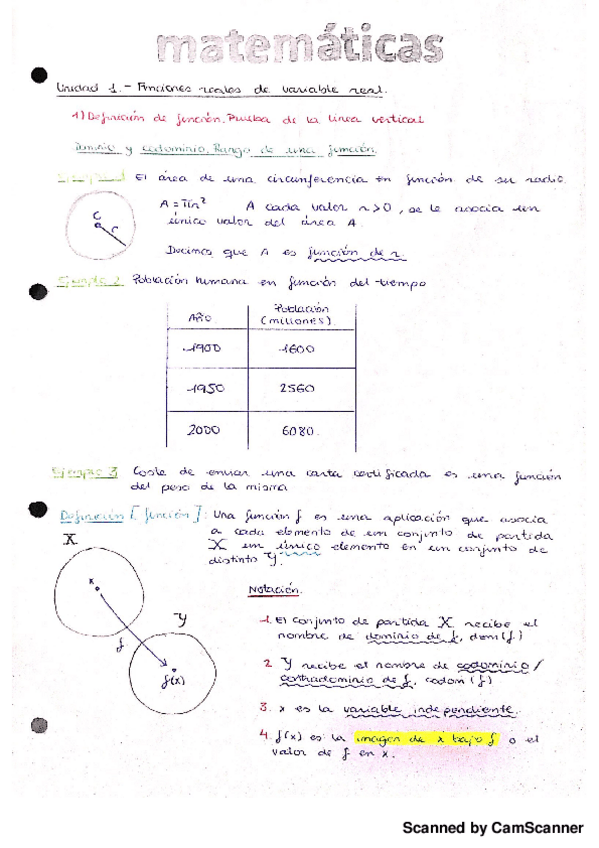 matemáticas
Unidad 1.- Funciones reales de variable real.
1) Definición de función. Prueba de la línea vertical
Dominio y codominio. Rango de una función.
Ejemplo 1 El área de una circunferencia en función de su radio.
A = πr² A cada valor r>0, se le asocia un
único valor del área A.
C
r
Decimos que A es función de r.
Ejemplo 2 Población humana en función del tiempo
Año Población (millones)
1900 1600
1950 2560
2000 6080
Ejemplo 3 Coste de enviar una carta certificada es una función
del peso de la misma
Definición [función]: Una función f es una aplicación que asocia
a cada elemento de un conjunto de partida
X un único elemento en un conjunto de
distinto Y.
X
x
Y
f
f(x)
Notación.
1. El conjunto de partida X recibe el
nombre de dominio de f, dom(f)
2. Y recibe el nombre de codominio/
contradominio de f, codom(f)
3. x es la variable independiente.
4. f(x) es la imagen de x bajo f o el
valor de f en x.
Scanned by CamScanner